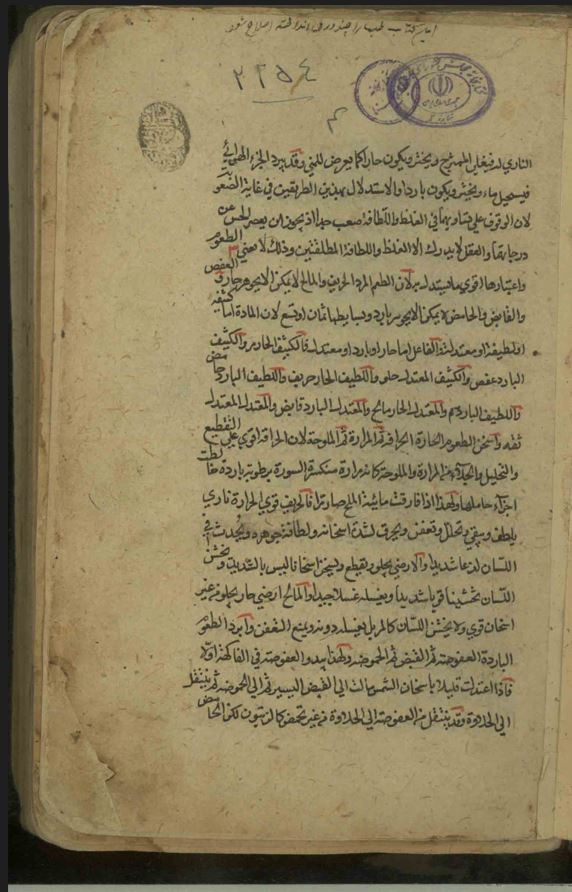 ٢٢٥٤
الناري لم فيغلي الممتزج ويخثر ويكون حارا كما يعرض للمني وقد يبرد الجزء الهوائي
فيستحيل ماء ويخثر ويكون باردا والاستدلال بهذين الطريقين في غاية الصعوبة
لان الوقوف على تساويهما في الغلظ واللطافة صعب جدا اذ يجوز ان يعصر الحس عن
درجاتها والعقل لا يدرك الا الغلظ واللطافة المطلقتين وذلك لا معنى الطعوم
واعتبارها اقوى ما يستدل به لان الطعم المر والحريف والمالح لا يمكن الا بجوهر حار والعفص
والقابض والحامض لا يمكن الا بجوهر بارد وبسايطها ثمان او تسع لان المادة اما كثيفة
او لطيفة او معتدلة والفاعل اما حار او بارد او معتدل فالكثيف الحار مر والكثيف
البارد عفص والكثيف المعتدل حلو واللطيف الحار حريف واللطيف البارد حامض
واللطيف المعتدل دسم والمعتدل الحار مالح والمعتدل البارد قابض والمعتدل المعتدل
تفه واسخن الطعوم الحارة الحرافة ثم المرارة ثم الملوحة لان الحرافة اقوى على التقطيع
والتحليل والجلاء من المرارة والملوحة كانه مرارة منكسرة السورة برطوبة باردة خالطت
اجزاء حاملها ولهذا اذا فارقت مائية الملح صار مرا فالحريف قوي الحرارة ناري
يلطف وينقي وتحلل وتعفن ويحرق لشدة اسخانه ولطافة جوهره ويحدث في
اللسان لذعا شديدا والمر ارضي يجلو ويقطع ويسخن اسخانا ليس بالشديد ويخشن
اللسان تخشينا قويا شديدا ويغسله غسلا جيدا والمالح ارضي حار يجلو من غير
اسخان قوي ولا يخشن اللسان كالمر بل يغسله دونه ويمنع العفن وابرد الطعوم
الباردة العفوصة ثم القبض ثم الحموضة ولهذا يبدو العفوصة في الفاكهة اولا
فاذا اعتدلت قليلا باسخان الشمس مالت الى القبض اليسير ثم الى الحموضة ثم تنتقل
الى الحلاوة وقد ينتقل من العفوصة الى الحلاوة من غير تحمض كالزيتون لكن الحامض